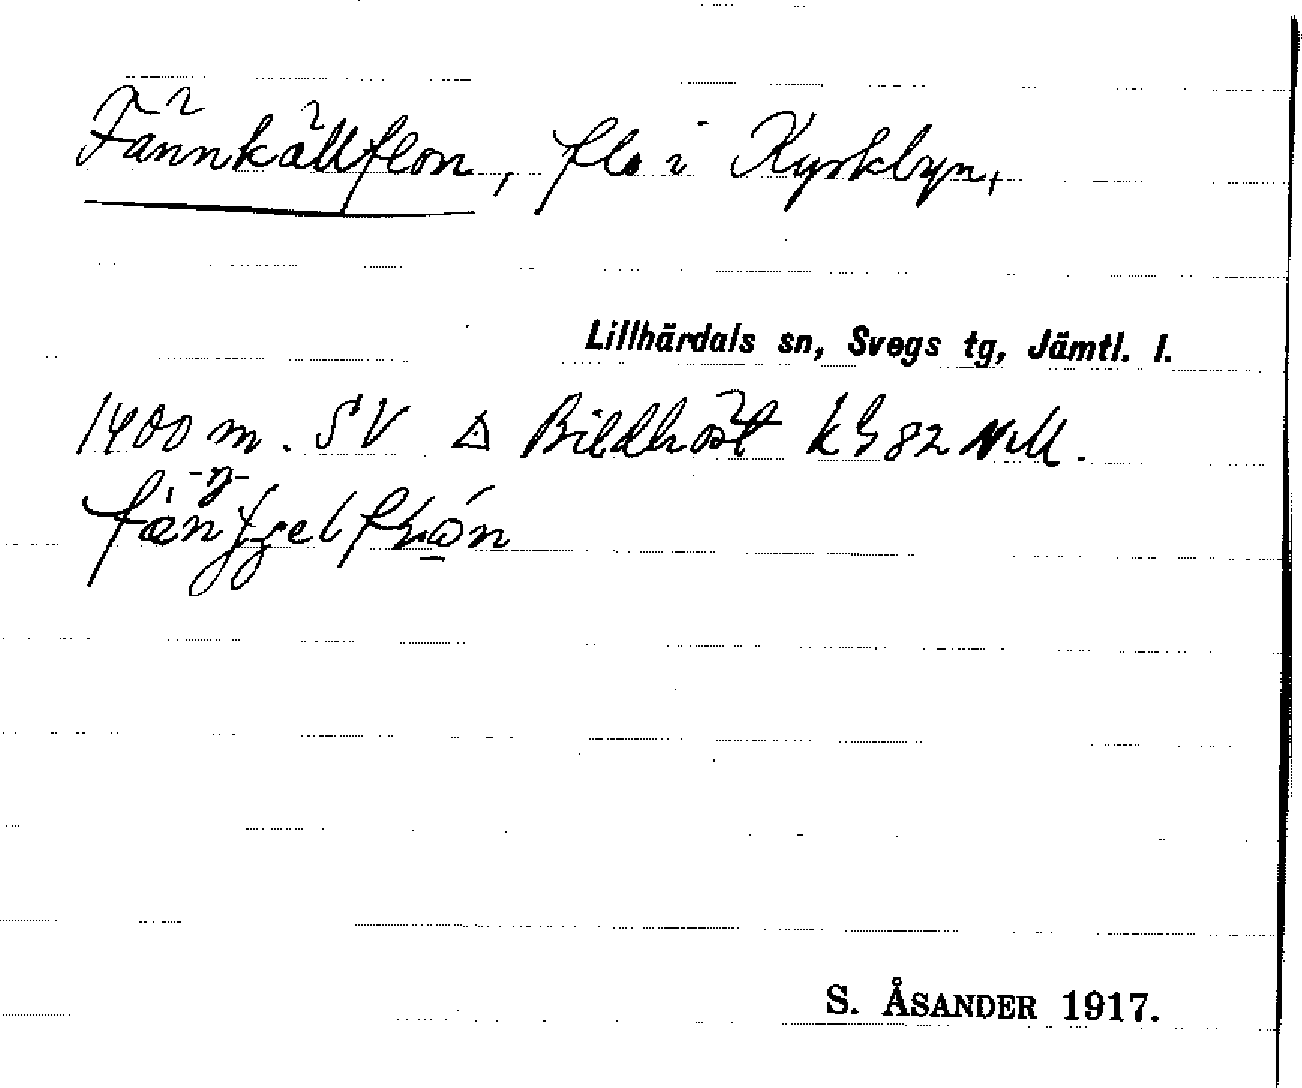 Fännkällflon, flo i Kyrkbyn,
Lillhärdals sn, Svegs tg, Jämtl. l.
1400 m. SV △ Bildhöst kb 82 NM.
S. ÅSANDER 1917.